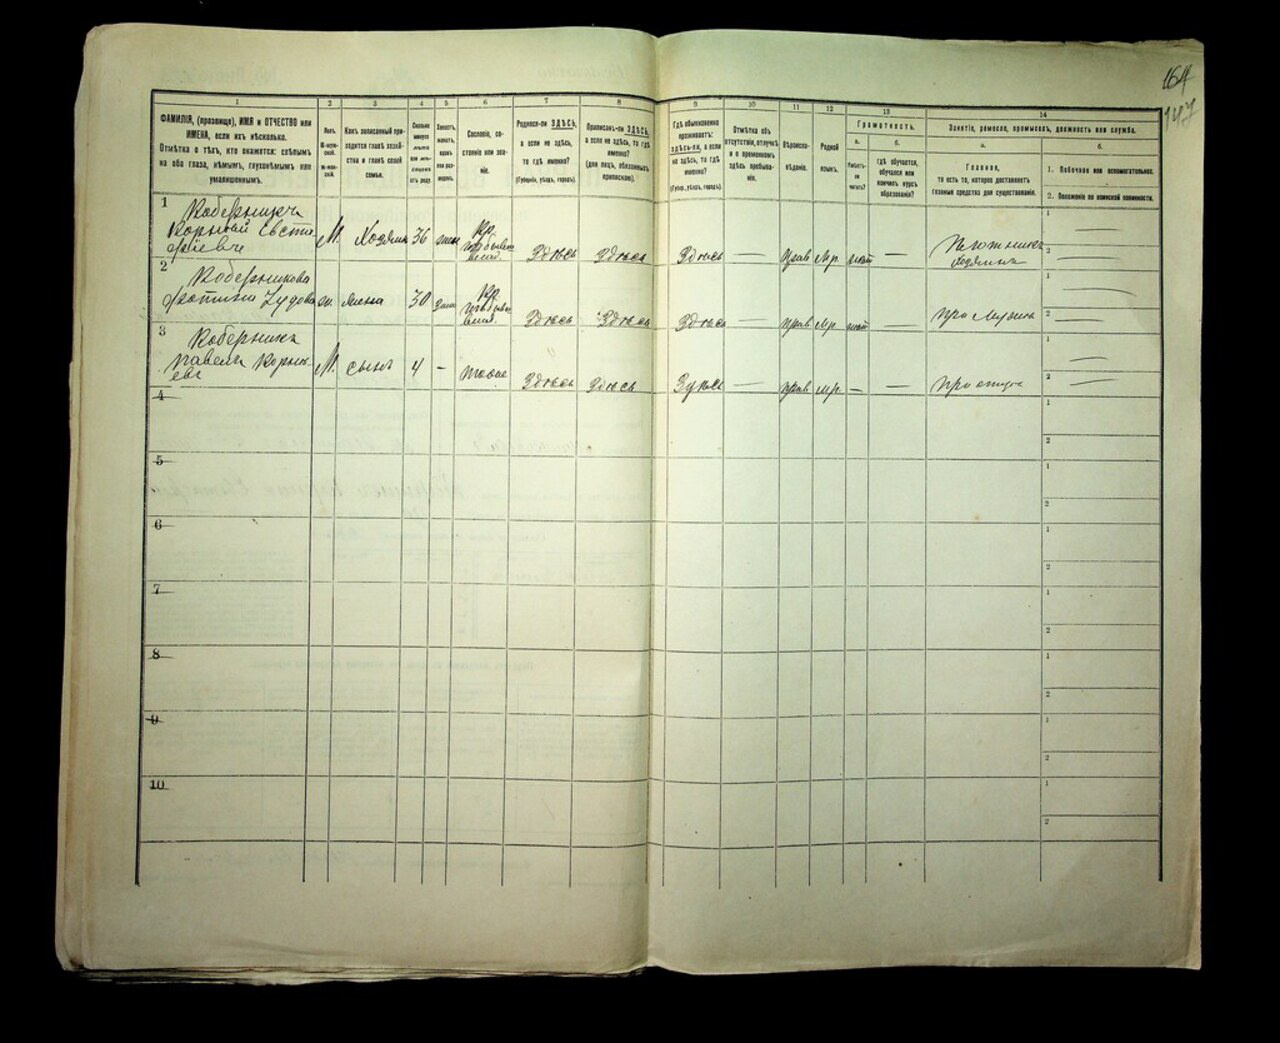 164
147
1
2
3
4
5
6
7
8
9
10
11
12
13
14
ФАМИЛІЯ, (прозвище), ИМЯ и ОТЧЕСТВО или
ИМЕНА, если ихъ нѣсколько.
Отмѣтка о тѣхъ, кто окажется: слѣпымъ
на оба глаза, нѣмымъ, глухонѣмымъ или
умалишеннымъ.
Полъ.
М-мужской.
Ж-женскій.
Какъ записанный при-
ходится главѣ хозяй-
ства и главѣ своей
семьи.
Сколько
минуло
лѣтъ
или мѣ-
сяцевъ
отъ роду.
Холостъ,
женатъ,
вдовъ
или раз-
веденъ.
Сословіе, со-
стояніе или зва-
ніе.
Родился-ли ЗДѢСЬ,
а если не здѣсь,
то гдѣ именно?
(Губернія, уѣздъ, городъ).
Приписанъ-ли ЗДѢСЬ,
а если не здѣсь, то гдѣ
именно?
(для лицъ, обязанныхъ
припискою).
Гдѣ обыкновенно
проживаетъ:
здѣсь-ли, а если
не здѣсь, то гдѣ
именно?
(Губер., уѣздъ, городъ).
Отмѣтка объ
отсутствіи, отлучкѣ
и о временномъ
здѣсь пребыва-
ніи.
Вѣроиспо-
вѣданіе.
Родной
языкъ.
Грамотность.
а.
Умѣетъ-
ли
читать?
б.
гдѣ обучается,
обучался или
кончилъ курсъ
образованія?
Занятіе, ремесло, промыселъ, должность или служба.
а.
Главное,
то есть то, которое доставляетъ
главныя средства для существованія.
б.
1. Побочное или вспомогательное.
2. Положеніе по воинской повинности.
1
Коберникъ
Корнѣй Евста
фіевъ
М. Хозяин 36 жен Кр. Здѣсь Здѣсь Здѣсь — Прав Мр. нѣт —
Плотникъ
хозяинъ
1 —
2 —
2
Коберникова
ж. жена 30 зам Кр. Здѣсь Здѣсь Здѣсь — прав Мр нѣт —
при Мужѣ
1 —
2 —
3
Коберникъ
Павелъ Корнѣ-
евъ
М. сынъ 4 — тоже Здѣсь Здѣсь Здѣсь — прав мр. — —
При отцѣ
1 —
2 —
4
1
2
5
1
2
6
1
2
7
1
2
8
1
2
9
1
2
10
1
2